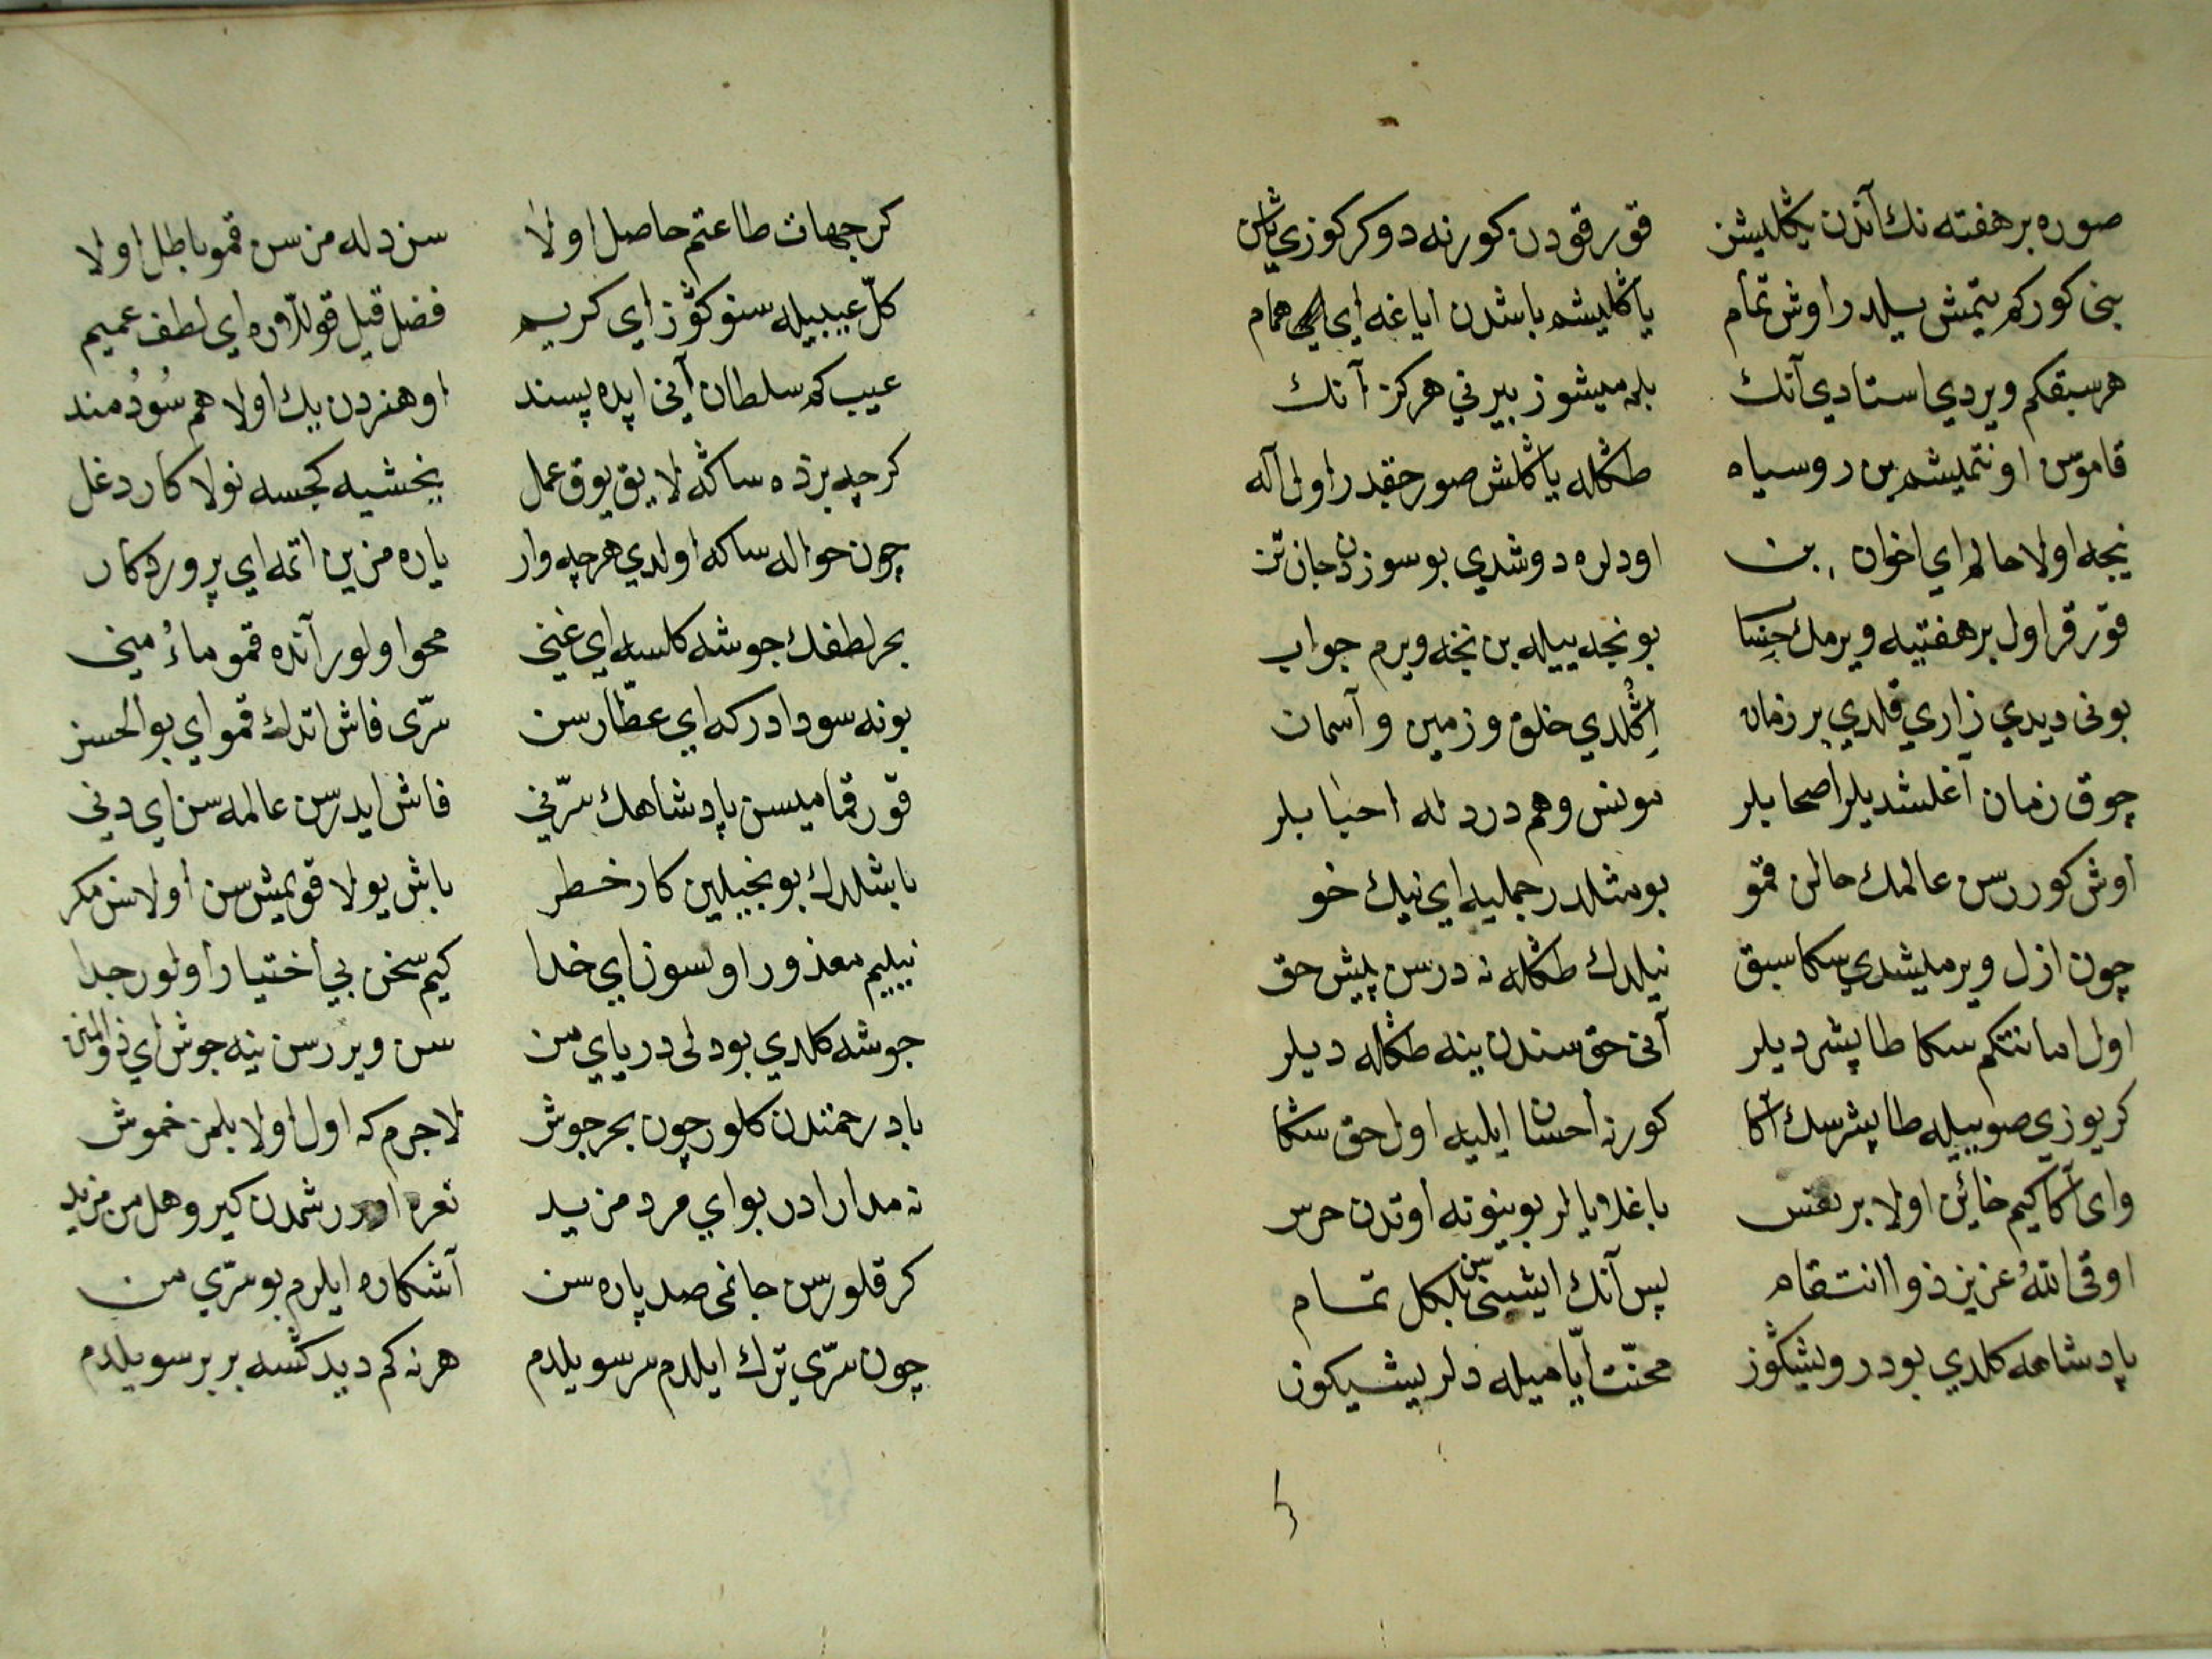 صوره بر هفته نك آندن يڭليشن قورقودن كورنه دوكر كوزي ياش
بنى كوركم يتمش ييلدر اوش تمام ياڭليشم باشدن اياغه اي همام
هر سبقكم ويردي استادي آنك بلمميشوز بيرني هركز آنك
قاموسن اونتميشم بن روسياه طڭله ياڭلش صورر حقدر اول اله
نيجه اولا حالم اي اخوان بن اودلره دوشدي بو سوزدن جان تن
قورقر اول بر هفتيه ويرمك حساب بونجه ييله بن نجه ويرم جواب
بونى ديدي زاري قلدي بر زمان اڭلدي خلق و زمين و آسمان
چوق زمان آغلشديلر اصحابلر مونس و هم درد له احبابلر
اوش كوررسن عالمك حالن قمو بو مثلدر جمليه اي نيك خو
چون ازل ويرمليشدي سكا سبق نيلدك طڭله نه درسن پيش حق
اول امانتكم سكا طاپشرديلر آنى حق سندن ينه طڭله ديلر
كر يوزي صوييله طاپشرسك آكا كور نه احسان ايليه اول حق سكا
واى آكا كيم خائن اولا بر نفس باغلايالر بوينوته اوتدن جرس
اوقى الله عزيز ذو انتقام پس آنك ايشينى سن بلكل تمام
پادشاهه كلدي بو درويشكوز محنت اياميله دلريشكوز
كر جهات طاعتم حاصل اولا سن دله مزسن قمو باطل اولا
كل عيبيله سنوكوز اي كريم فضل قيل قوللاره اي لطف عميم
عيب كم سلطان آنى ايده پسند او هنردن يك اولا هم سودمند
كرچه بزده ساڭه لايق يوق عمل يخشيه كجسه نولا كار دغل
چون حواله ساكه اولدي هرچه وار ياره مزين اتمه اي پروردكار
بحر لطفك جوشه كلسه اي غني محو اولور آنده قمو ماء منى
بو نه سودادر كه اي عطارسن سرى فاش اتدك قمو اي بو الحسن
قورقماميسن پادشاهك سرني فاش ايدرسن عالمه سن اي دني
باشلدك بونجيلين كار خطر باش يولا قويمش سن اولاسن مكر
نيليم معذور اولسوز اي خدا كيم سخن بي اختيار اولور جدا
جوشه كلدي بو دلى درياي من سن ويررسن ينه جوش اي ذو المنن
باد رحمتدن كلور چون بحر جوش لاجرم كه اول اولا بلمز خموش
نه مدارادر بو اي مرد مزيد نعره اوررشمدن كيرو هل من مزيد
كر قلورسن جانمى صد پاره سن آشكاره ايلرم بو سري من
چون سري ترك ايلدم سر سويلدم هر نه كم ديدكسه بر بر سويلدم